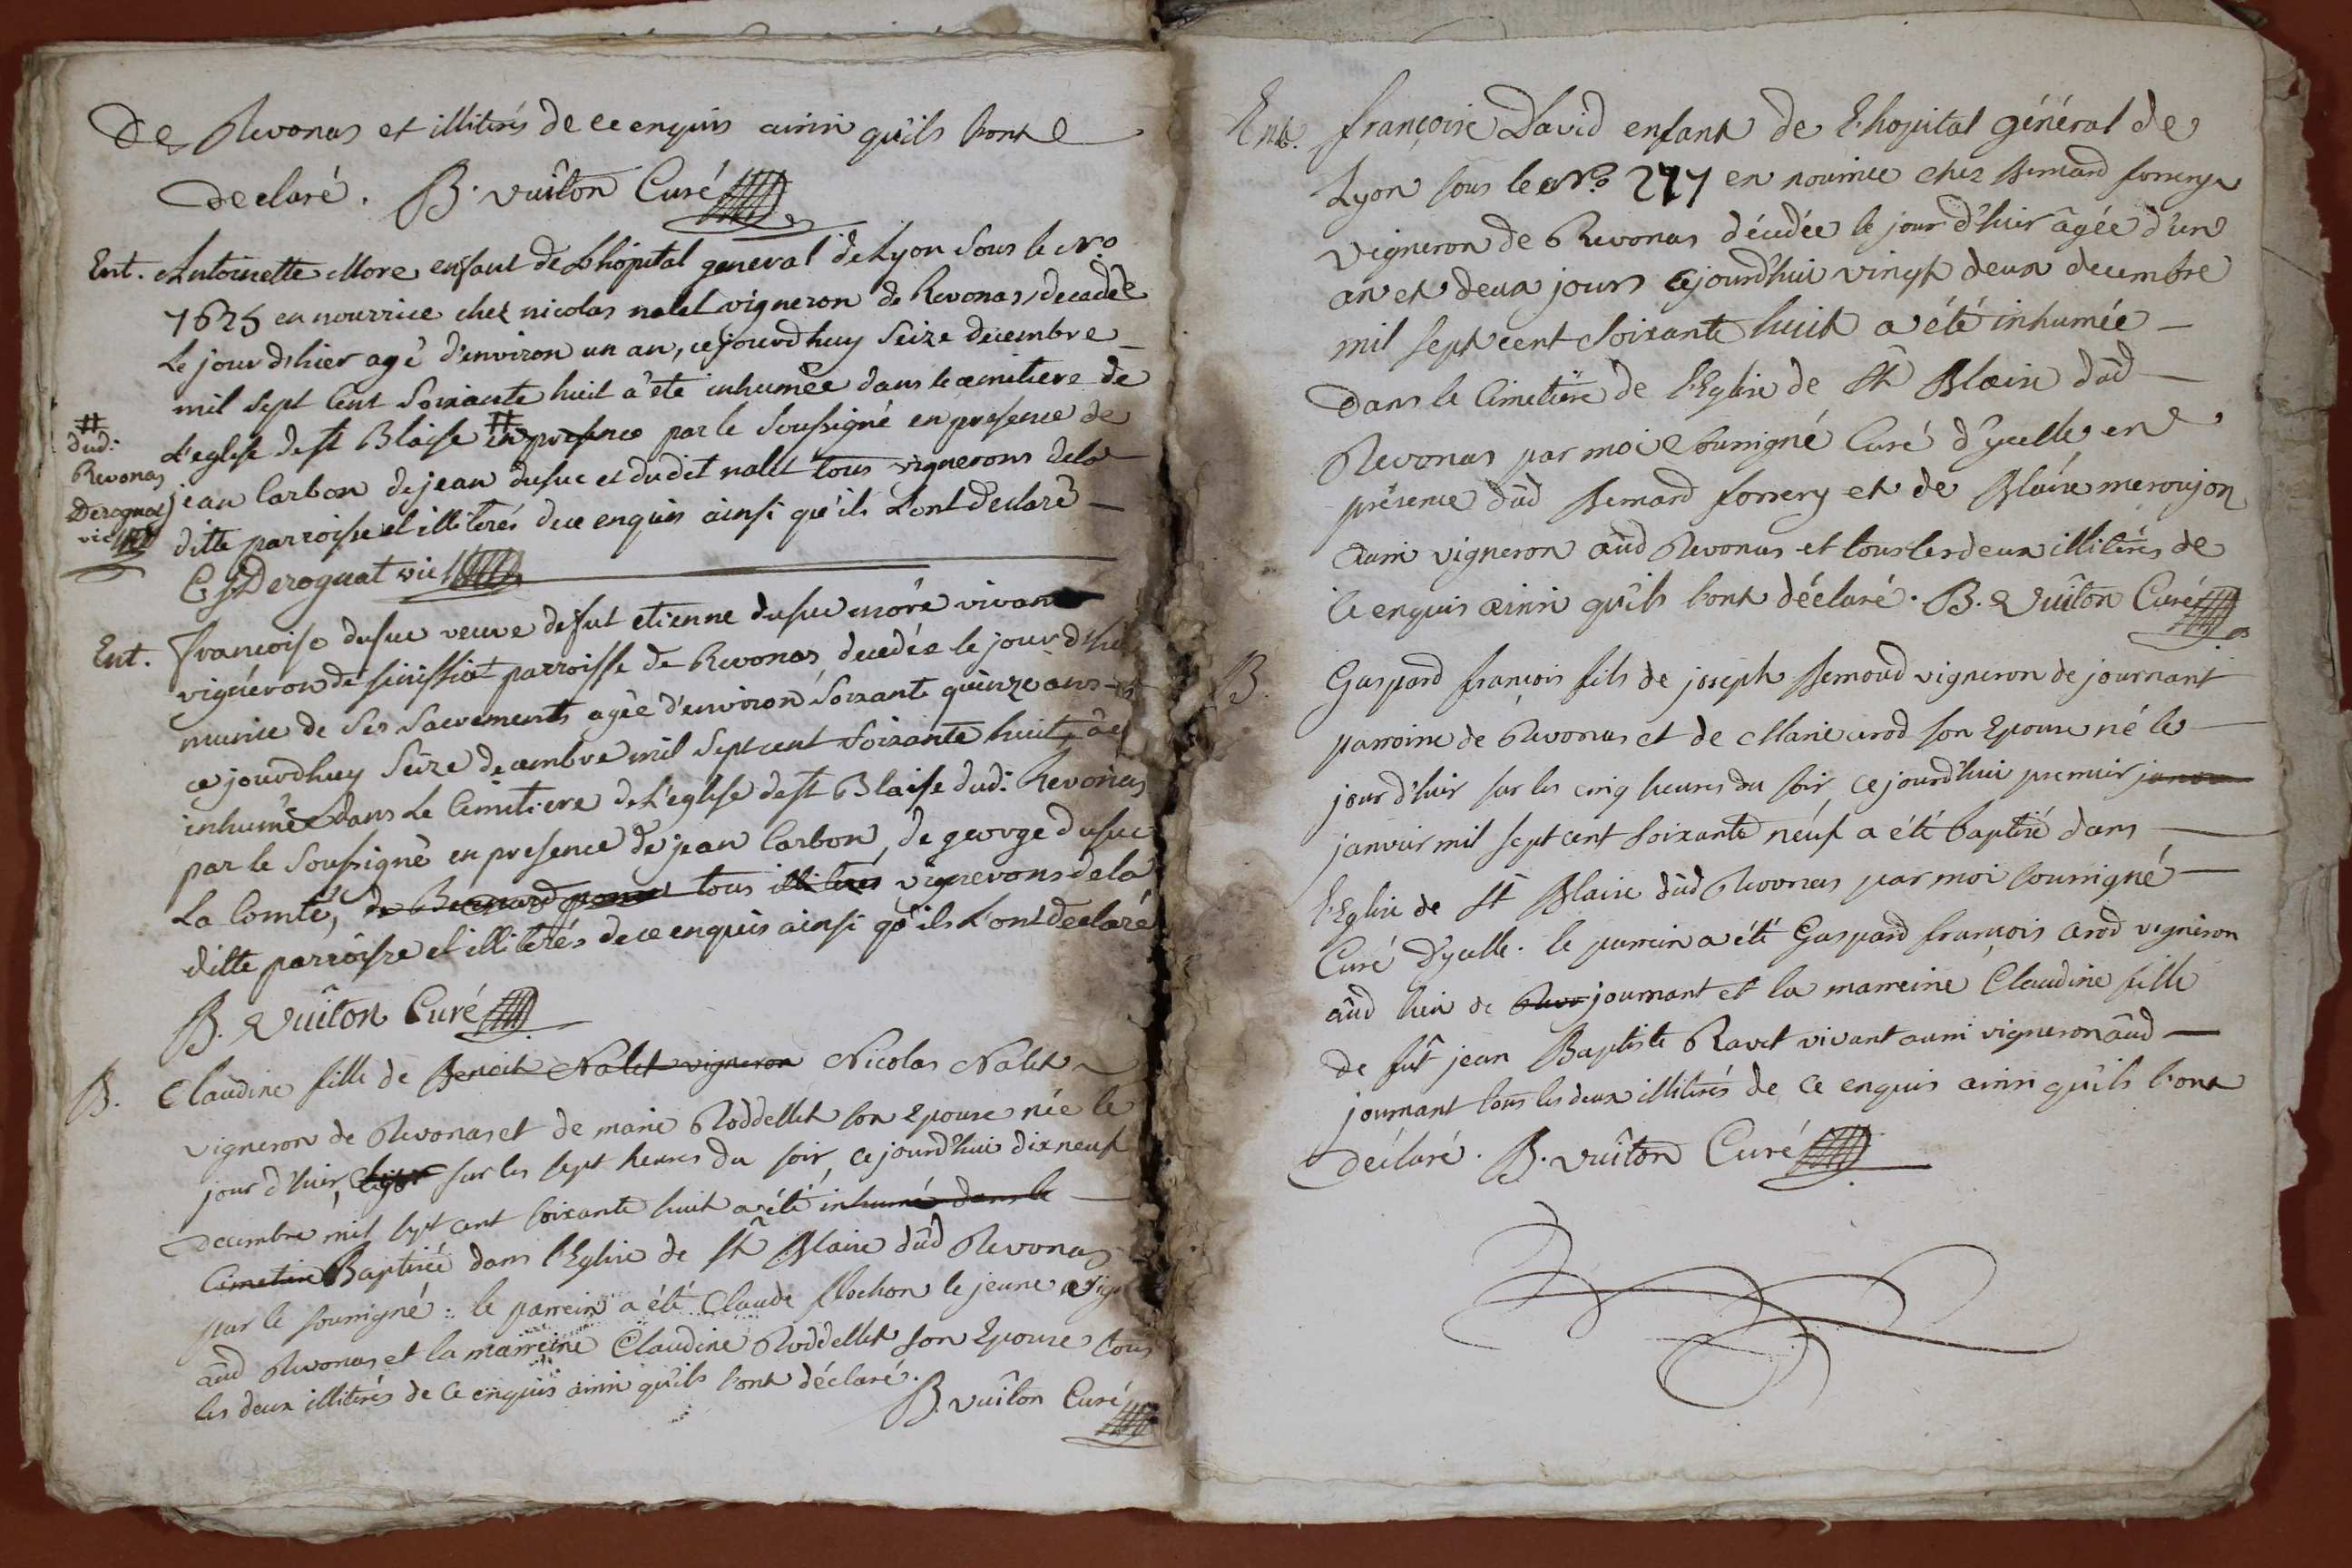 De Revonas et illitérés de ce enquis ainsi qu'ils l'ont
declaré. B. Vuiton Curé
Ent. Antoinette More enfant de L'hôpital general de Lyon Sous le N.o
1625 en nourrice chez nicolas nalet vigneron de Revonas, decedée
Le jour d'hier agé d'environ un an, cejourd'huy Seize decembre
mil Sept Cent Soixante huit a été inhumée dans le cemitiere de
L'eglise de st Blaise # en presence par le Soussigné en presence de
# dud: Revonas Deroguat vic
jean Carbon de jean dusuc et dudit nalet tous vignerons dela
ditte parroisse et illiterés de ce enquis ainsi qu'ils L'ont Declaré
C. J. Deroguat vic
Ent. Francoise dusuc veuve de fut etienne dusuc vivant
vigneron de senissiat parroisse de Revonas, decedée le jour d'hier
munie de Ses Sacrements agée d'environ Soixante quinze ans
ce jourdhuy Seize decembre mil Sept cent Soixante huit, a été
inhumée dans Le Cimitiere de L'eglise de st Blaise dud: Revonas
par le Soussigné en presence de jean Carbon, de george dusuc
La Comte, de Bernard tous illiterés vignerons dela
ditte parroisse et illiterés de ce enquis ainsi qu'ils L'ont Declaré
B. Vuiton Curé
B. Claudine fille de Benoit Nalet vigneron Nicolas Nalet
vigneron de Revonas et de marie Roddellet son Epouse née le
jour d'hier, sur les sept heures du soir, ce jourd'hui dix neuf
decembre mil sept cent soixante huit a été inhumé dans le
Cimetiere Baptisée dans l'Eglise de St Blaise dûd Revonas
par le soussigné: le parrein a été Claude flochon le jeune vign
aûd Revonas et la marreine Claudine Roddellet son Epouse tous
les deux illitérés de ce enquis ainsi qu'ils l'ont déclaré.
B. Vuiton Curé
Ent. françoise David enfant de l'hopital général de
Lyon sous le N.o 277 en nourrice chez Bernard forrery
vigneron de Revonas décédée le jour d'hier âgée d'un
an et deux jours cejourd'hui vingt deux decembre
mil sept cent soixante huit a été inhumée
Dans le Cimetiere de l'Eglise de St Blaise dûd
Revonas par moi soussigné Curé d'ycelle en
présence dûd Bernard forrery et de Blaise meroujon
aussi vigneron aûd Revonas et tous les deux illitérés de
ce enquis ainsi qu'ils l'ont déclaré. B. Vuiton Curé
B. Gaspard françois fils de joseph Bernoud vigneron de journant
parroisse de Revonas et de Marie arod son Epouse né le
jour d'hier sur les cinq heures du soir, ce jourd'hui premier janvi
janvier mil sept cent soixante neuf a été baptisé dans
l'Eglise de St Blaise dûd Revonas par moi soussigné
Curé d'ycelle. le parrein a été Gaspard françois arod vigneron
aûd lieu de Revo journant et la marreine Claudine fille
de fût jean Baptiste Ravet vivant aussi vigneron aûd
journant tous les deux illitérés de ce enquis ainsi qu'ils l'ont
déclaré. B. Vuiton Curé